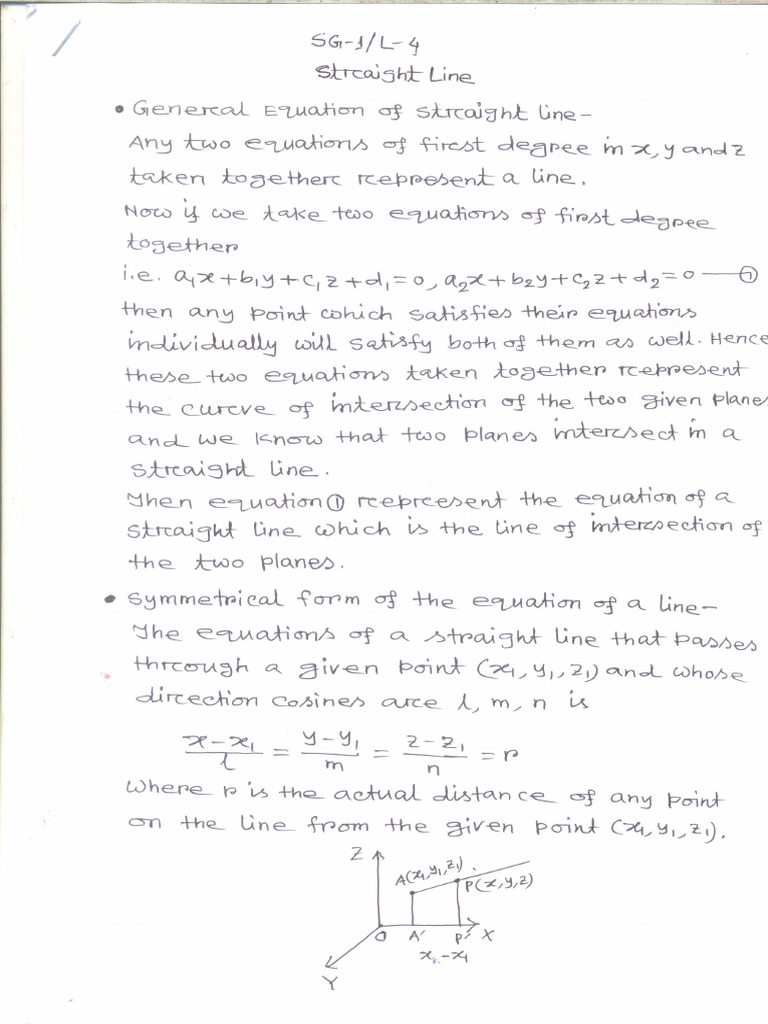 SG-1/L-4
Straight Line
• General Equation of straight line-
Any two equations of first degree in x, y and z
taken together represent a line.
Now if we take two equations of first degree
together
i.e. a₁x+b₁y+c₁z+d₁=0, a₂x+b₂y+c₂z+d₂=0 —①
then any point which satisfies their equations
individually will satisfy both of them as well. Hence
these two equations taken together represent
the curve of intersection of the two given planes
and we know that two planes intersect in a
straight line.
Then equation ① represent the equation of a
straight line which is the line of intersection of
the two planes.
• Symmetrical form of the equation of a line-
The equations of a straight line that passes
through a given point (x₁, y₁, z₁) and whose
direction cosines are l, m, n is
(x-x₁)/l = (y-y₁)/m = (z-z₁)/n = r
Where r is the actual distance of any point
on the line from the given point (x₁, y₁, z₁).
Z
A(x₁, y₁, z₁)
P(x, y, z)
O A' P' X
x-x₁
Y